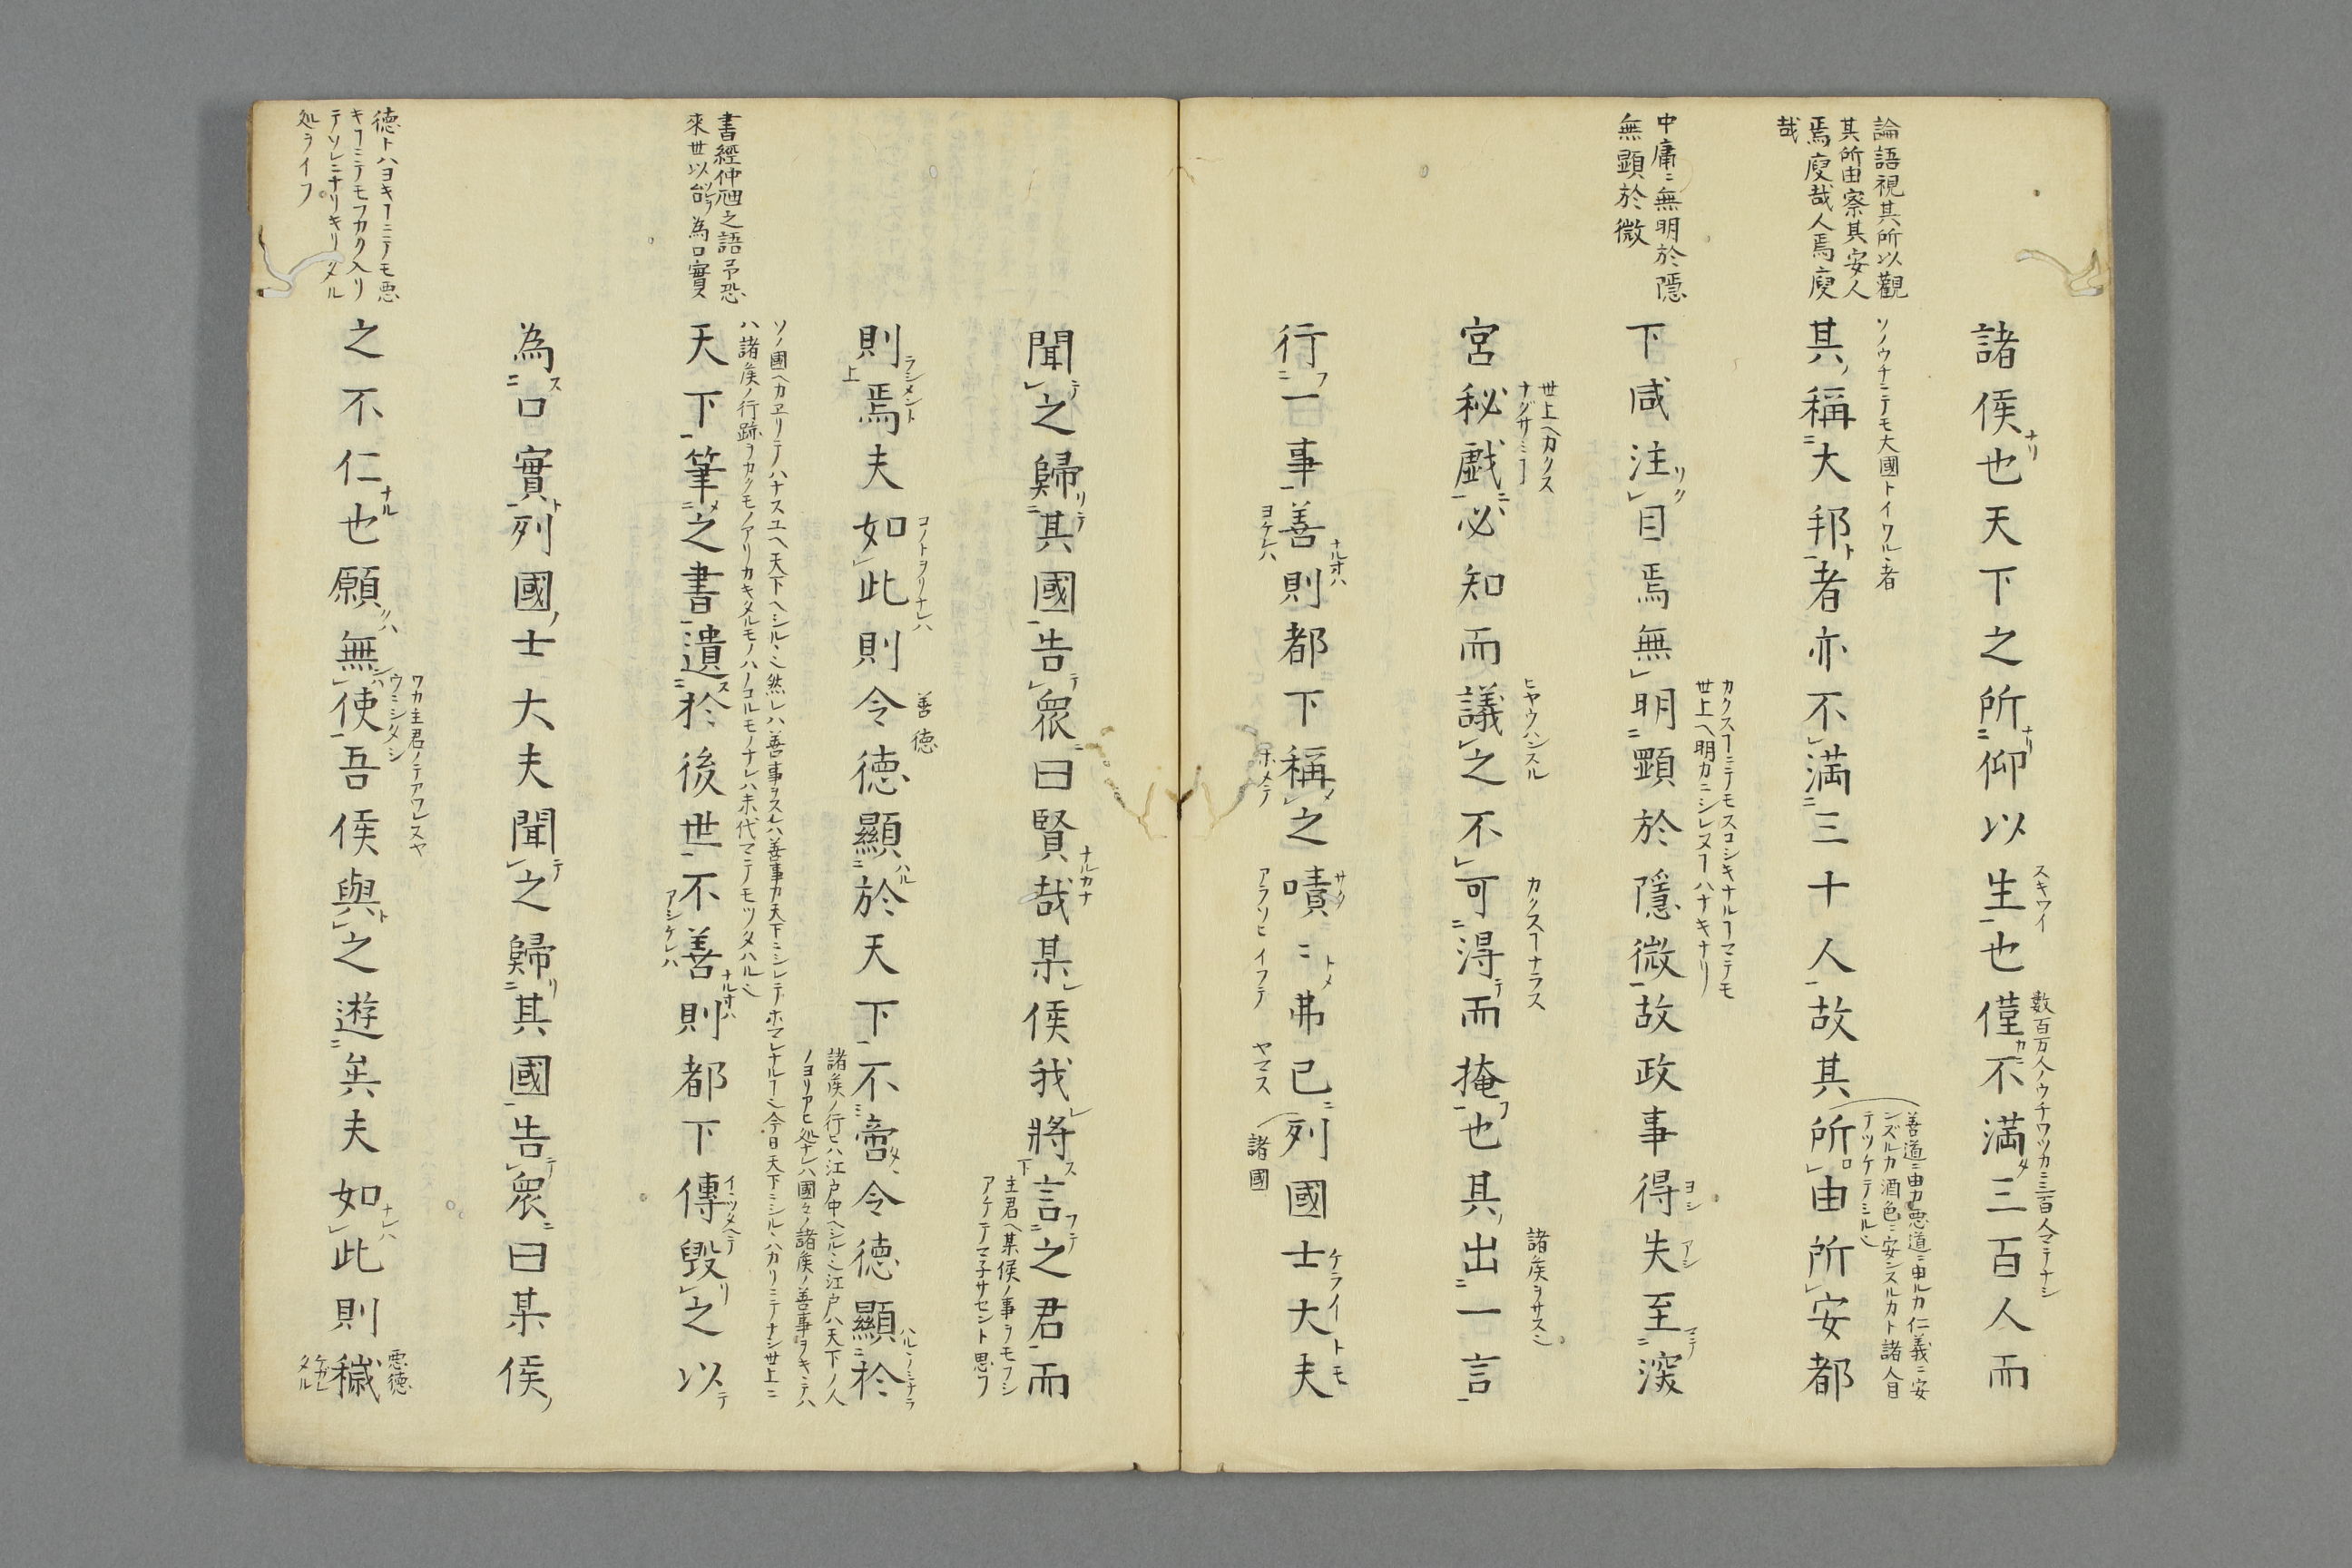 論語視其所以觀
其所由察其安人
焉廋哉人焉廋
哉
中庸ニ無明於隱
無顕於微
諸侯也天下之所仰以生也僅不満三百人而
スキワイ
数百万人ノウチワツカニ三百人マテナシ
其稱大邦者亦不満三十人故其所由所安都
ソノウチニテモ大國トイワルヽ者
善道ニ由カ悪道ニ由ルカ仁義ニ安
ンズルカ酒色ニ安ンスルカト諸人目
下咸注目焉無明顕於隱微故政事得失至深
カクスヿニテモスコシキナルヿマテモ
世上ヘ明カニシレヌヿハナキナリ
宮秘戯必知而議之不可得而掩也其出一言
世上ヘカクス
ナグサミヿ
ヒヤウハンスル
カクスヿナラス
諸侯ヲサス
行一事善則都下稱之嘖〻弗已列國士大夫
ヨケレハ
ホメテ
アラソヒイフテ
ヤマス
諸國
ケライトモ
聞之歸其國告衆曰賢哉某侯我將言之君而
主君ヘ某候ノ事ヲモフシ
アケテマ子サセント思フ
則焉夫如此則令德顯於天下不啻令德顯於
ラシメント
コノトヲリナレハ
善徳
諸侯ノ行ヒハ江戸中ヘシル 江戸ハ天下ノ人
ノヨリアヒ処ナレハ國々ノ諸侯ノ善事ヲキヽテハ
ソノ國ヘカヱリテハナスユヘ天下ヘシルヽ 然レハ善事ヲスルハ善事カ天下ニシレテホマレナルヿ 今日天下ニシルヽハカリニテナシ世上ニ
ハ諸侯ノ行跡ヲカクモノアリカキタルモノハノコルモノナレハ末代マテモツタハル
書經仲虺之語予恐
來世以台為口實
天下筆之書遺於後世不善則都下傳毀之以
アシケレハ
為口實列國士大夫聞之歸其國告衆曰某侯
徳トハヨキヿニテモ悪
キヿニテモフカク入リ
テソレニナリキリタル
処ライフ
之不仁也願無使吾侯與之遊矣夫如此則穢
ワカ主君ノテアワレスヤ
ウニシタシ
悪徳
ケガレ
タル